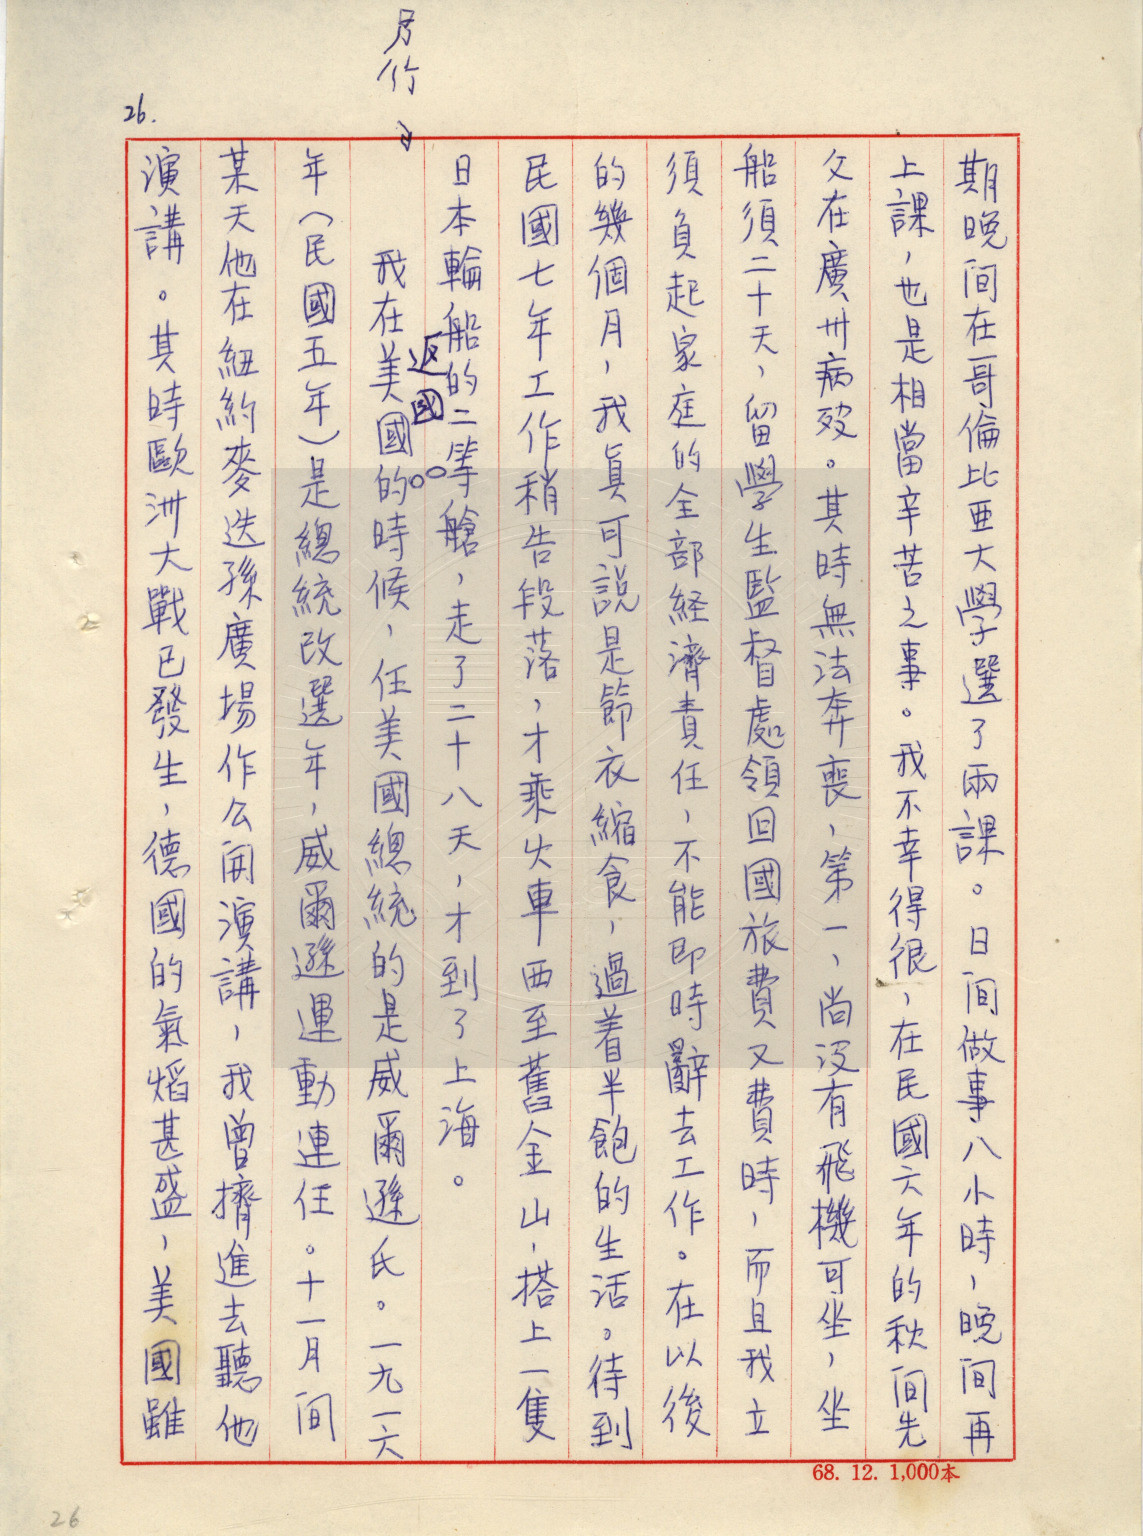 另行
26.
期晚间在哥倫比亜大學選了兩課。日间做事八小時，晚间再
上課，也是相當辛苦之事。我不幸得很，在民國六年的秋间先
父在廣州病歿。其時無法奔喪，第一、尚没有飛機可坐，坐
船須二十天，留學生監督處領回國旅費又費時，而且我立
須負起家庭的全部経濟責任，不能即時辭去工作。在以後
的幾個月，我眞可說是節衣縮食，過着半飽的生活。待到
民國七年工作稍告段落，才乘火車西至舊金山，搭上一隻
日本輪船的二等艙，走了二十八天，才到了上海。
返國
我在美國的時候，任美國總統的是威爾遜氏。一九一六
年（民國五年）是總統改選年，威爾遜運動連任。十一月间
某天他在紐約麥迭孫廣場作公開演講，我曾擠進去聽他
演講。其時歐洲大戰已發生，德國的氣焰甚盛，美國雖
68. 12. 1,000本
26